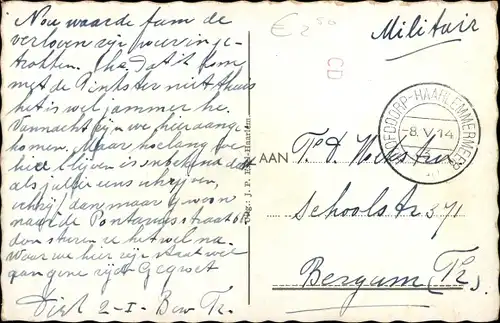 Nou waarde fam de
verloven zijn weer inge-
trokken. Dat ik kome
met de Pinkster niet thuis
het is wel jammer he.
Vannacht zijn we hier aange
komen. Maar hoelang we
hier blijven is onbekend dat
als jullie eens schrijven,
schrijf dan maar gewoon
naar de straat
dan sturen ze het wel na.
Waar we hier zijn staat wel
aan gene zijde Gegroet
Dirk 2-I-
€ 2 50
Militair
CD
HOOFDDORP-HAARLEMMERMEER
-8.V.14
Uitg.: J. P. Haarlem
AAN
Fa. D. Hoekstra
Schoolstr 391
Bergum (Fr.)